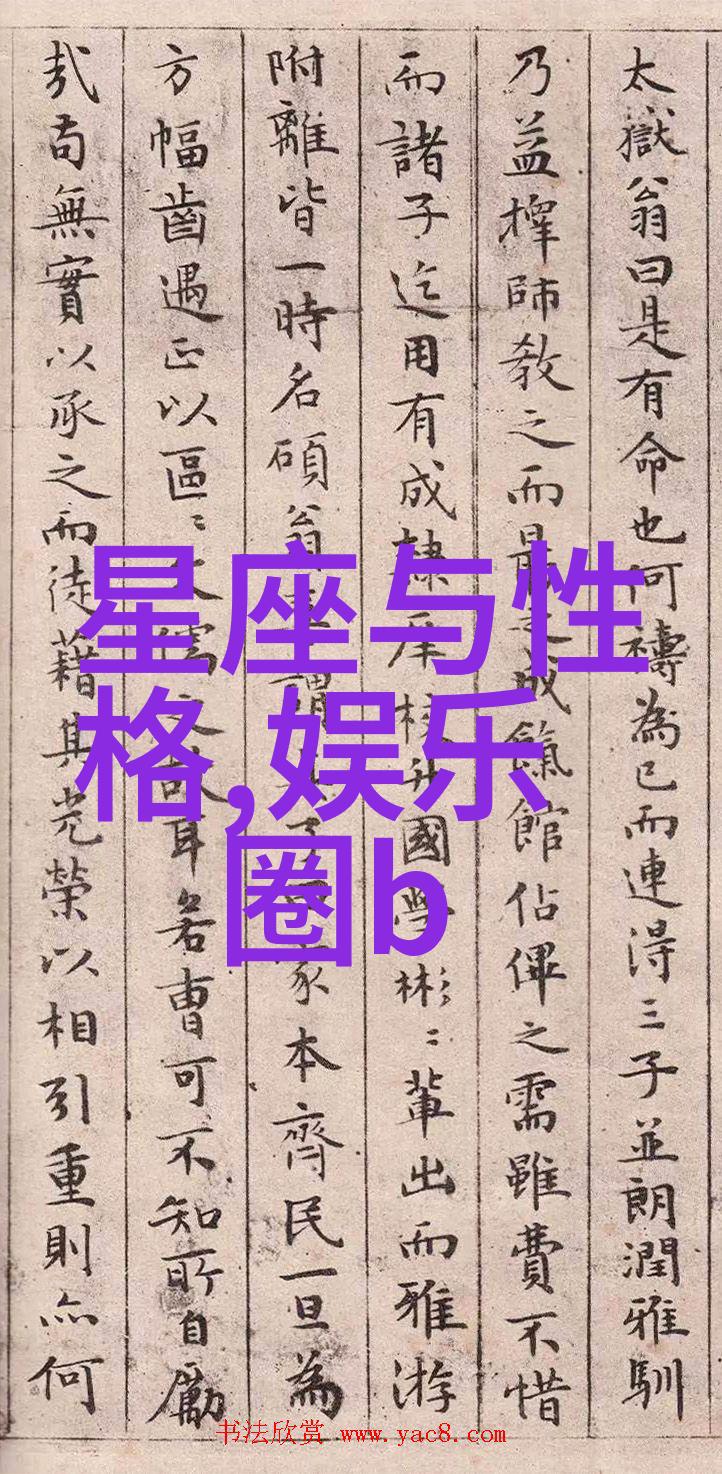 太嶽翁曰是有命也何禱為已而連得三子並朗潤雅馴
乃益擇師教之而最之成餼館佔俾之需雖費不惜
而諸子迄用有成隸庠校升國學彬彬輩出而雅游
附離皆一時名碩翁謂家本齊民一旦為
方幅齒遇正以區〻儒之故耳若曹可不知所自勵
哉苟無實以承之而徒藉其光榮以相引重則亦何
星座与性
格,娱乐
圈b
书法欣赏 www.yac8.com